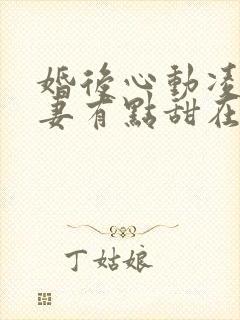 婚後心動凌
妻有點甜在
丁姑娘